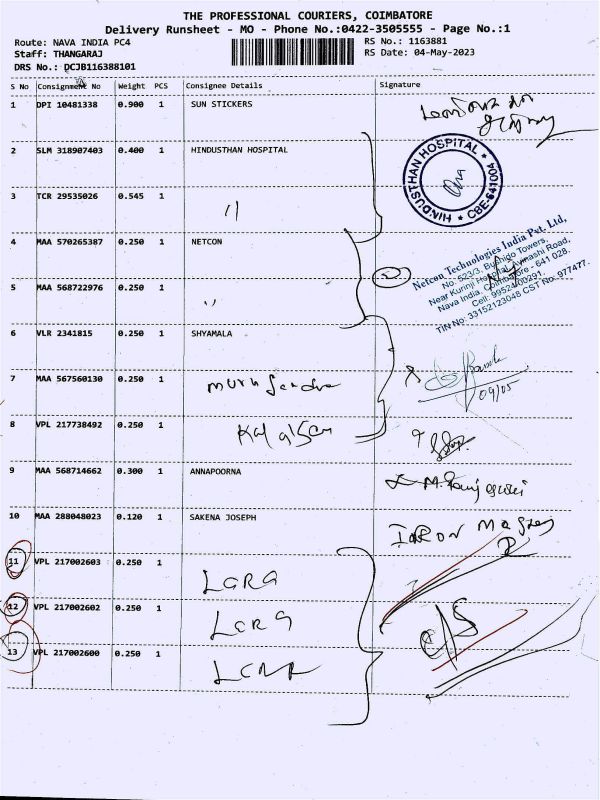 THE PROFESSIONAL COURIERS, COIMBATORE
Delivery Runsheet - MO - Phone No.:0422-3505555 - Page No.:1
Route: NAVA INDIA PC4 RS No.: 1163881
Staff: THANGARAJ RS Date: 04-May-2023
DRS No.: DCJB116388101
S No Consignment No Weight PCS Consignee Details Signature
1 DPI 10481338 0.900 1 SUN STICKERS
2 SLM 318907403 0.400 1 HINDUSTHAN HOSPITAL
HINDUSTHAN HOSPITAL ★ CBE-641004 ★
3 TCR 29535026 0.545 1 "
4 MAA 570265387 0.250 1 NETCON
Netcon Technologies India Pvt. Ltd,
No. 523/3, Bushido Towers,
Near Kurinji Hospital, Avinashi Road,
Nava India, Coimbatore - 641 028.
Cell: 99524 00291,
TIN No: 33152123048 CST No: 977477.
5 MAA 568722976 0.250 1 "
6 VLR 2341815 0.250 1 SHYAMALA
7 MAA 567560130 0.250 1
09/05
8 VPL 217738492 0.250 1
9 MAA 568714662 0.300 1 ANNAPOORNA
10 MAA 288048023 0.120 1 SAKENA JOSEPH
11 VPL 217002603 0.250 1 LARA
12 VPL 217002602 0.250 1 LARA
13 VPL 217002600 0.250 1 LARA